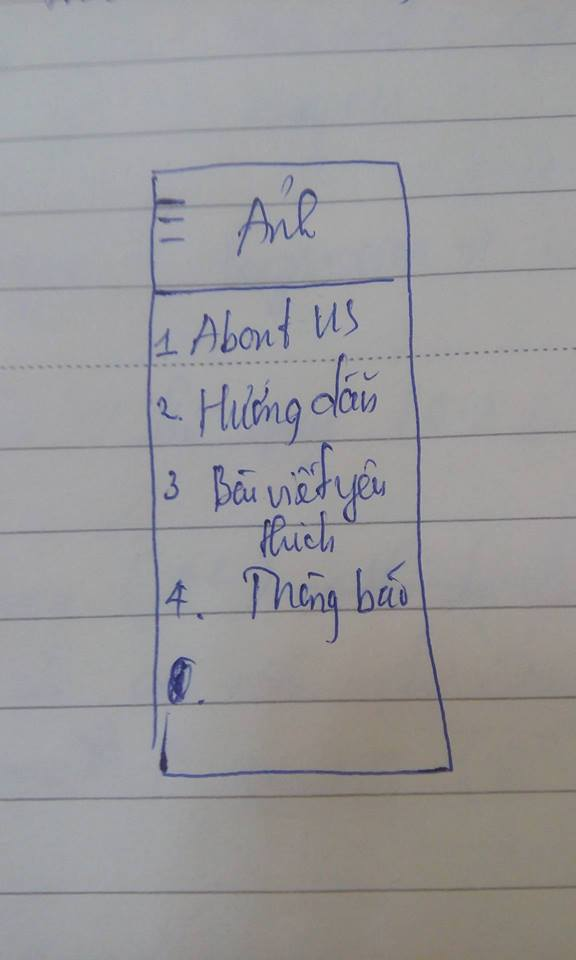 Ảnh
1 About US
2. Hướng dẫn
3 Bài viết yêu
thích
4. Thông báo